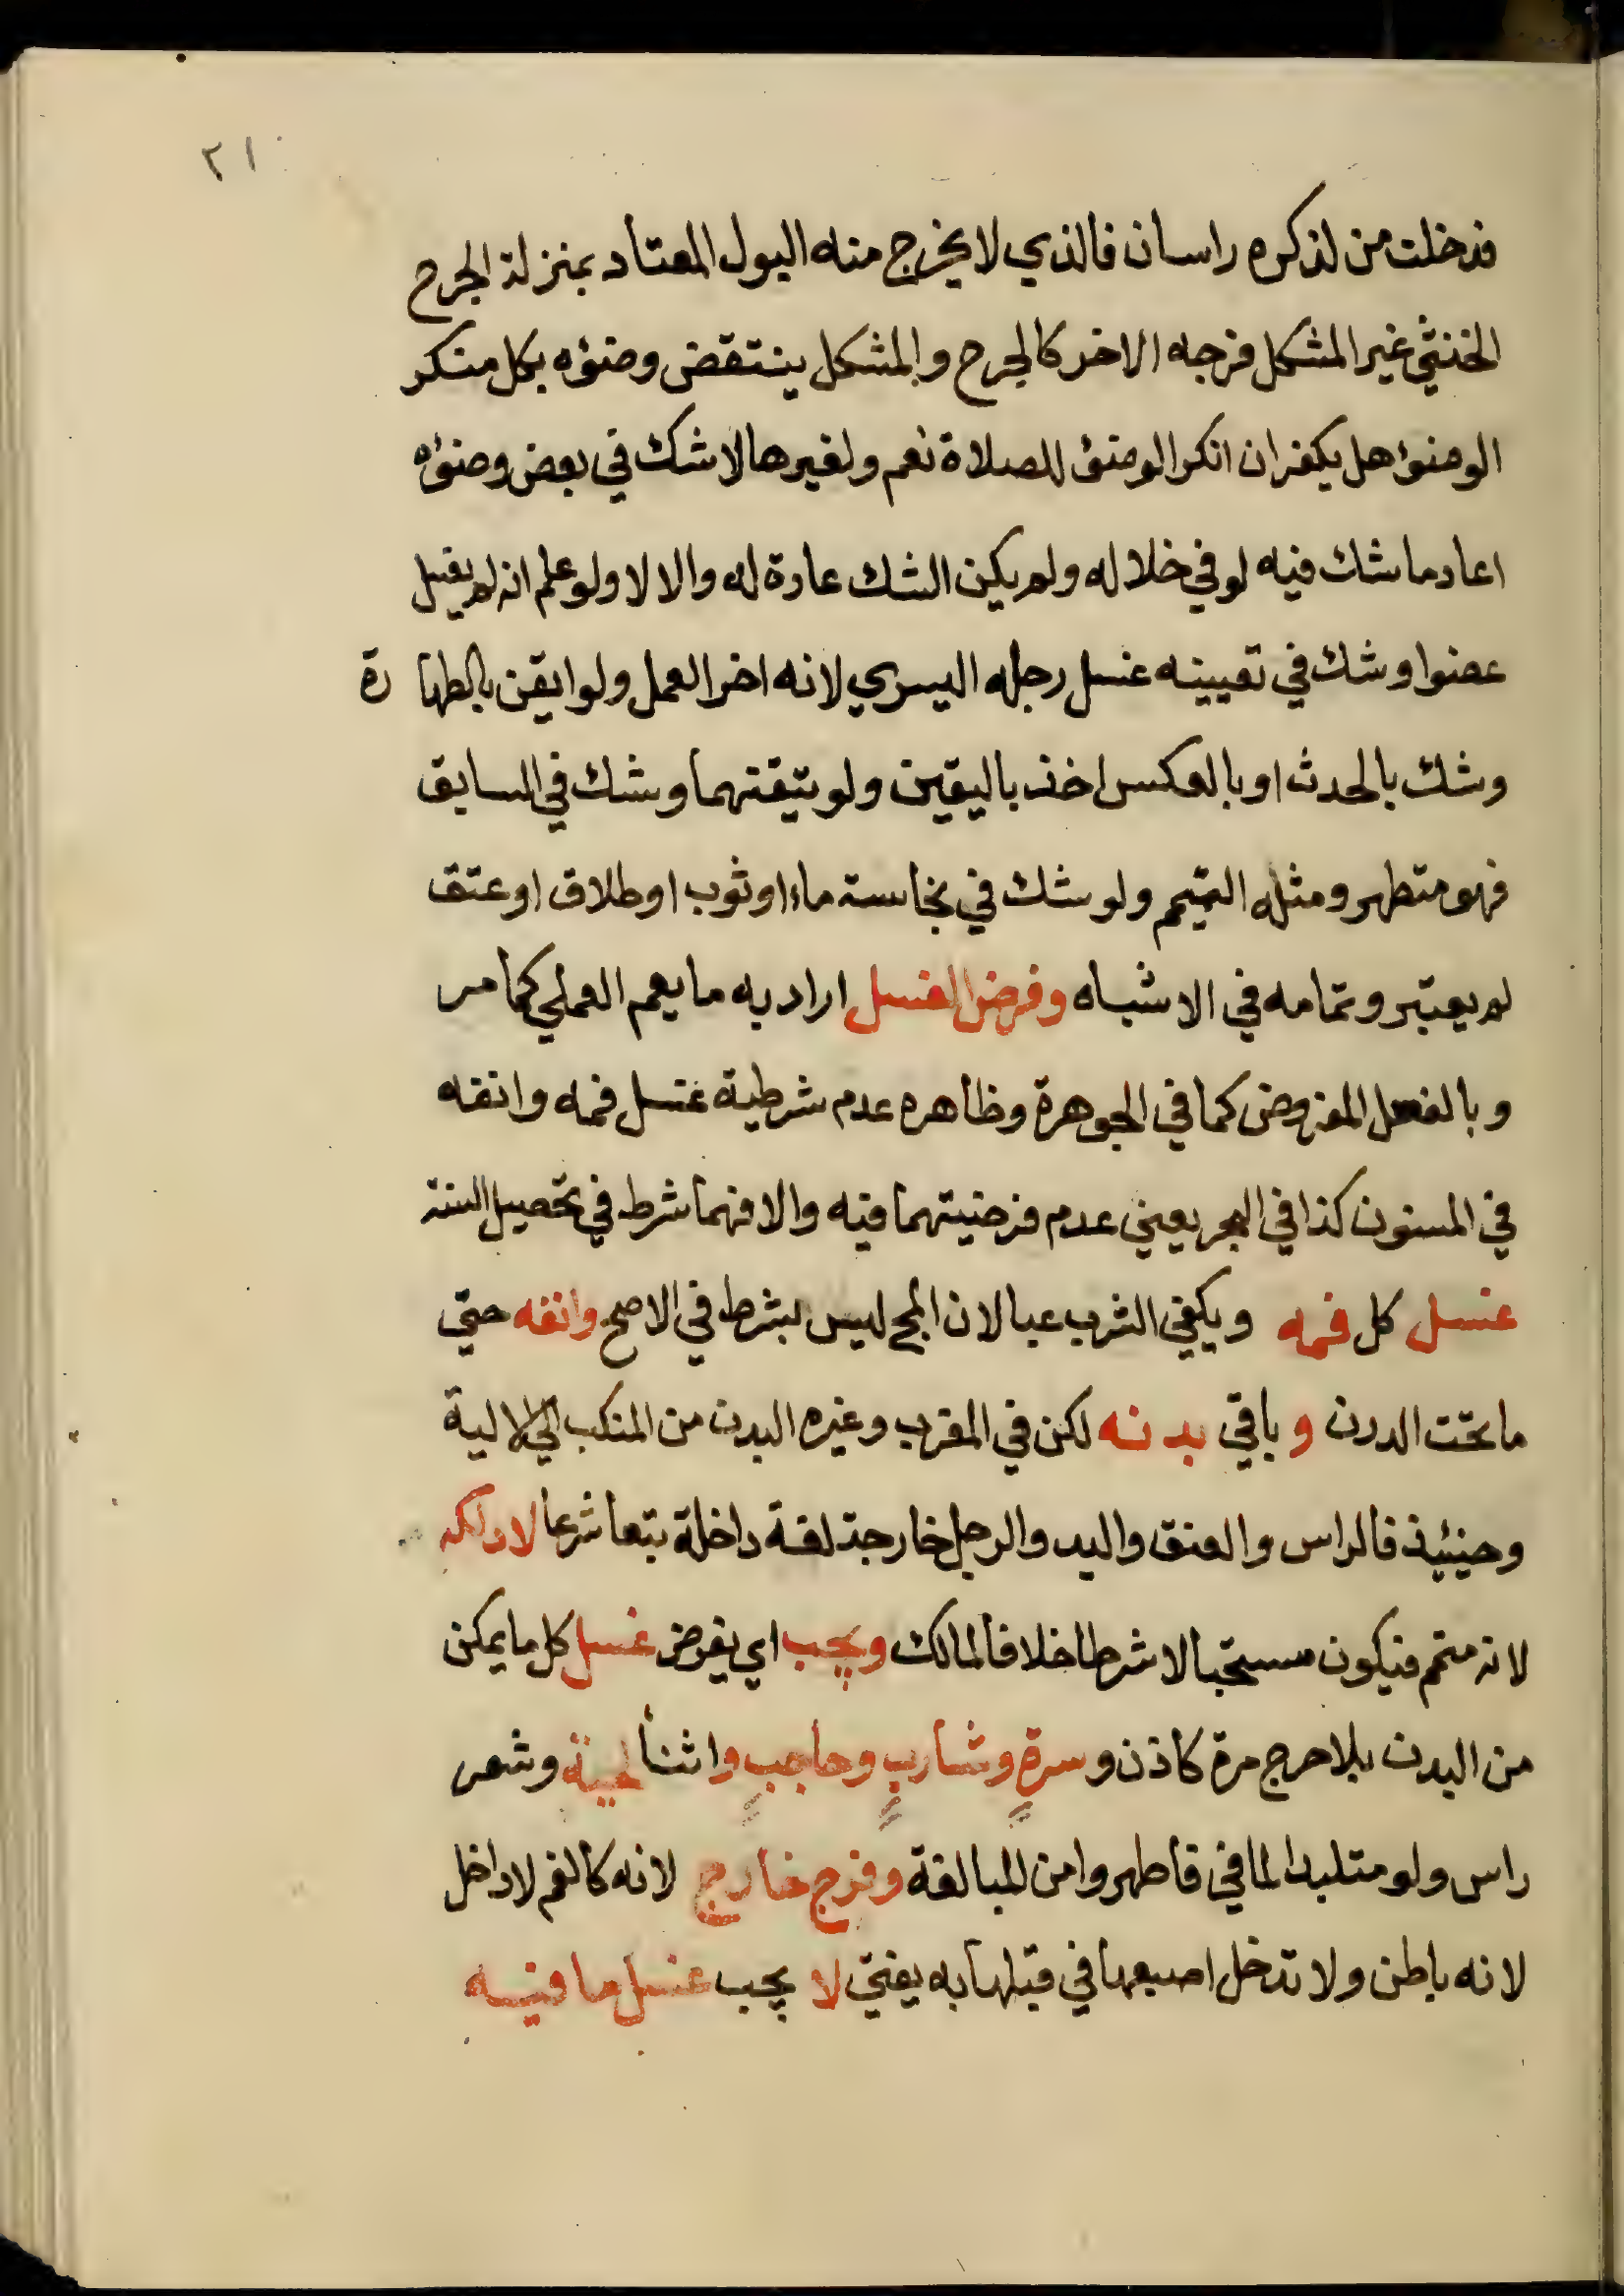 ٢١
فدخلت من لذكره راسان فالذي لا يخرج منه البول المعتاد بمنزلة الجرح
الخنثي غير المشكل فرجه الاخر كالجرح والمشكل ينتقض وضؤه بكل منكر
الوضؤ هل يكفر ان انكر الوضؤ للصلاة نعم ولغيرها لا شك في بعض وضؤه
اعاد ما شك فيه لو في خلاله ولم يكن الشك عادة له والا لا ولو علم انه لم يغسل
عضوا وشك في تعيينه غسل رجله اليسري لانه اخر العمل ولو ايقن بالطهارة
وشك بالحدث او بالعكس اخذ باليقين ولو تيقنهما وشك في السابق
فهو متطهر ومثله التيمم ولو شك في نجاسة ماء او ثوب او طلاق او عتق
لم يعتبر وتمامه في الاشباه وفرض الغسل اراد به ما يعم العملي كما مر
وبالغسل المفروض كما في الجوهرة وظاهره عدم شرطية غسل فمه وانفه
في المسنون كذا في البحر يعني عدم فرضيتهما فيه والا فهما شرط في تحصيل السنة
غسل كل فمه ويكفي الشرب عبا لان المج ليس بشرط في الاصح وانفه حتي
ما تحت الدرن وباقي بدنه لكن في المغرب وغيره البدن من المنكب الي الالية
وحينئذ فالراس والعنق واليد والرجل خارجة لغة داخلة تبعا شرعا لا دلكه
لانه متمم فيكون مستحبا لا شرطا خلافا لمالك ويجب اي يفرض غسل كل ما يمكن
من البدن بلا حرج مرة كاذن وسرة وشارب وحاجب واثنا لحية وشعر
راس ولو متلبدا لما في فاطهروا من المبالغة وفرج خارج لانه كالفم لا داخل
لانه باطن ولا تدخل اصبعها في قبلها به يفتي لا يجب غسل ما فيه